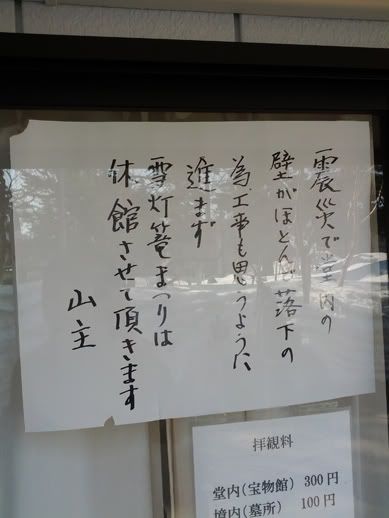 震災で堂内の
壁がほとんど落下の
為工事も思うように
進まず
雪灯篭まつりは
休館させて頂きます
山主
拝観料
堂内(宝物館) 300円
境内(墓所) 100円